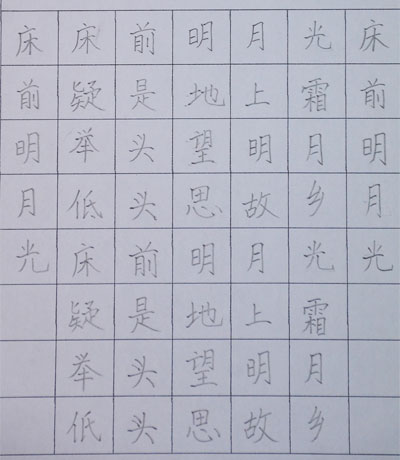 床床前明月光床
前疑是地上霜前
明举头望明月明
月低头思故乡月
光床前明月光光
疑是地上霜
举头望明月
低头思故乡